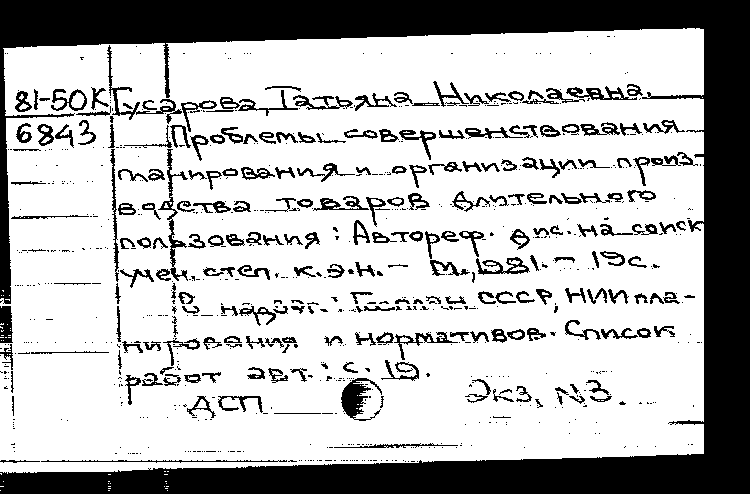 81-50К Гусарова, Татьяна Николаевна.
6843 Проблемы совершенствования
планирования и организации произ-
водства товаров длительного
пользования: Автореф. дис. на соиск.
учен. степ. к.э.н. – М., 1981. – 19с.
В надзаг.: Госплан СССР, НИИ пла-
нирования и нормативов. Список
работ авт.: с. 19.
ДСП Экз. №3.